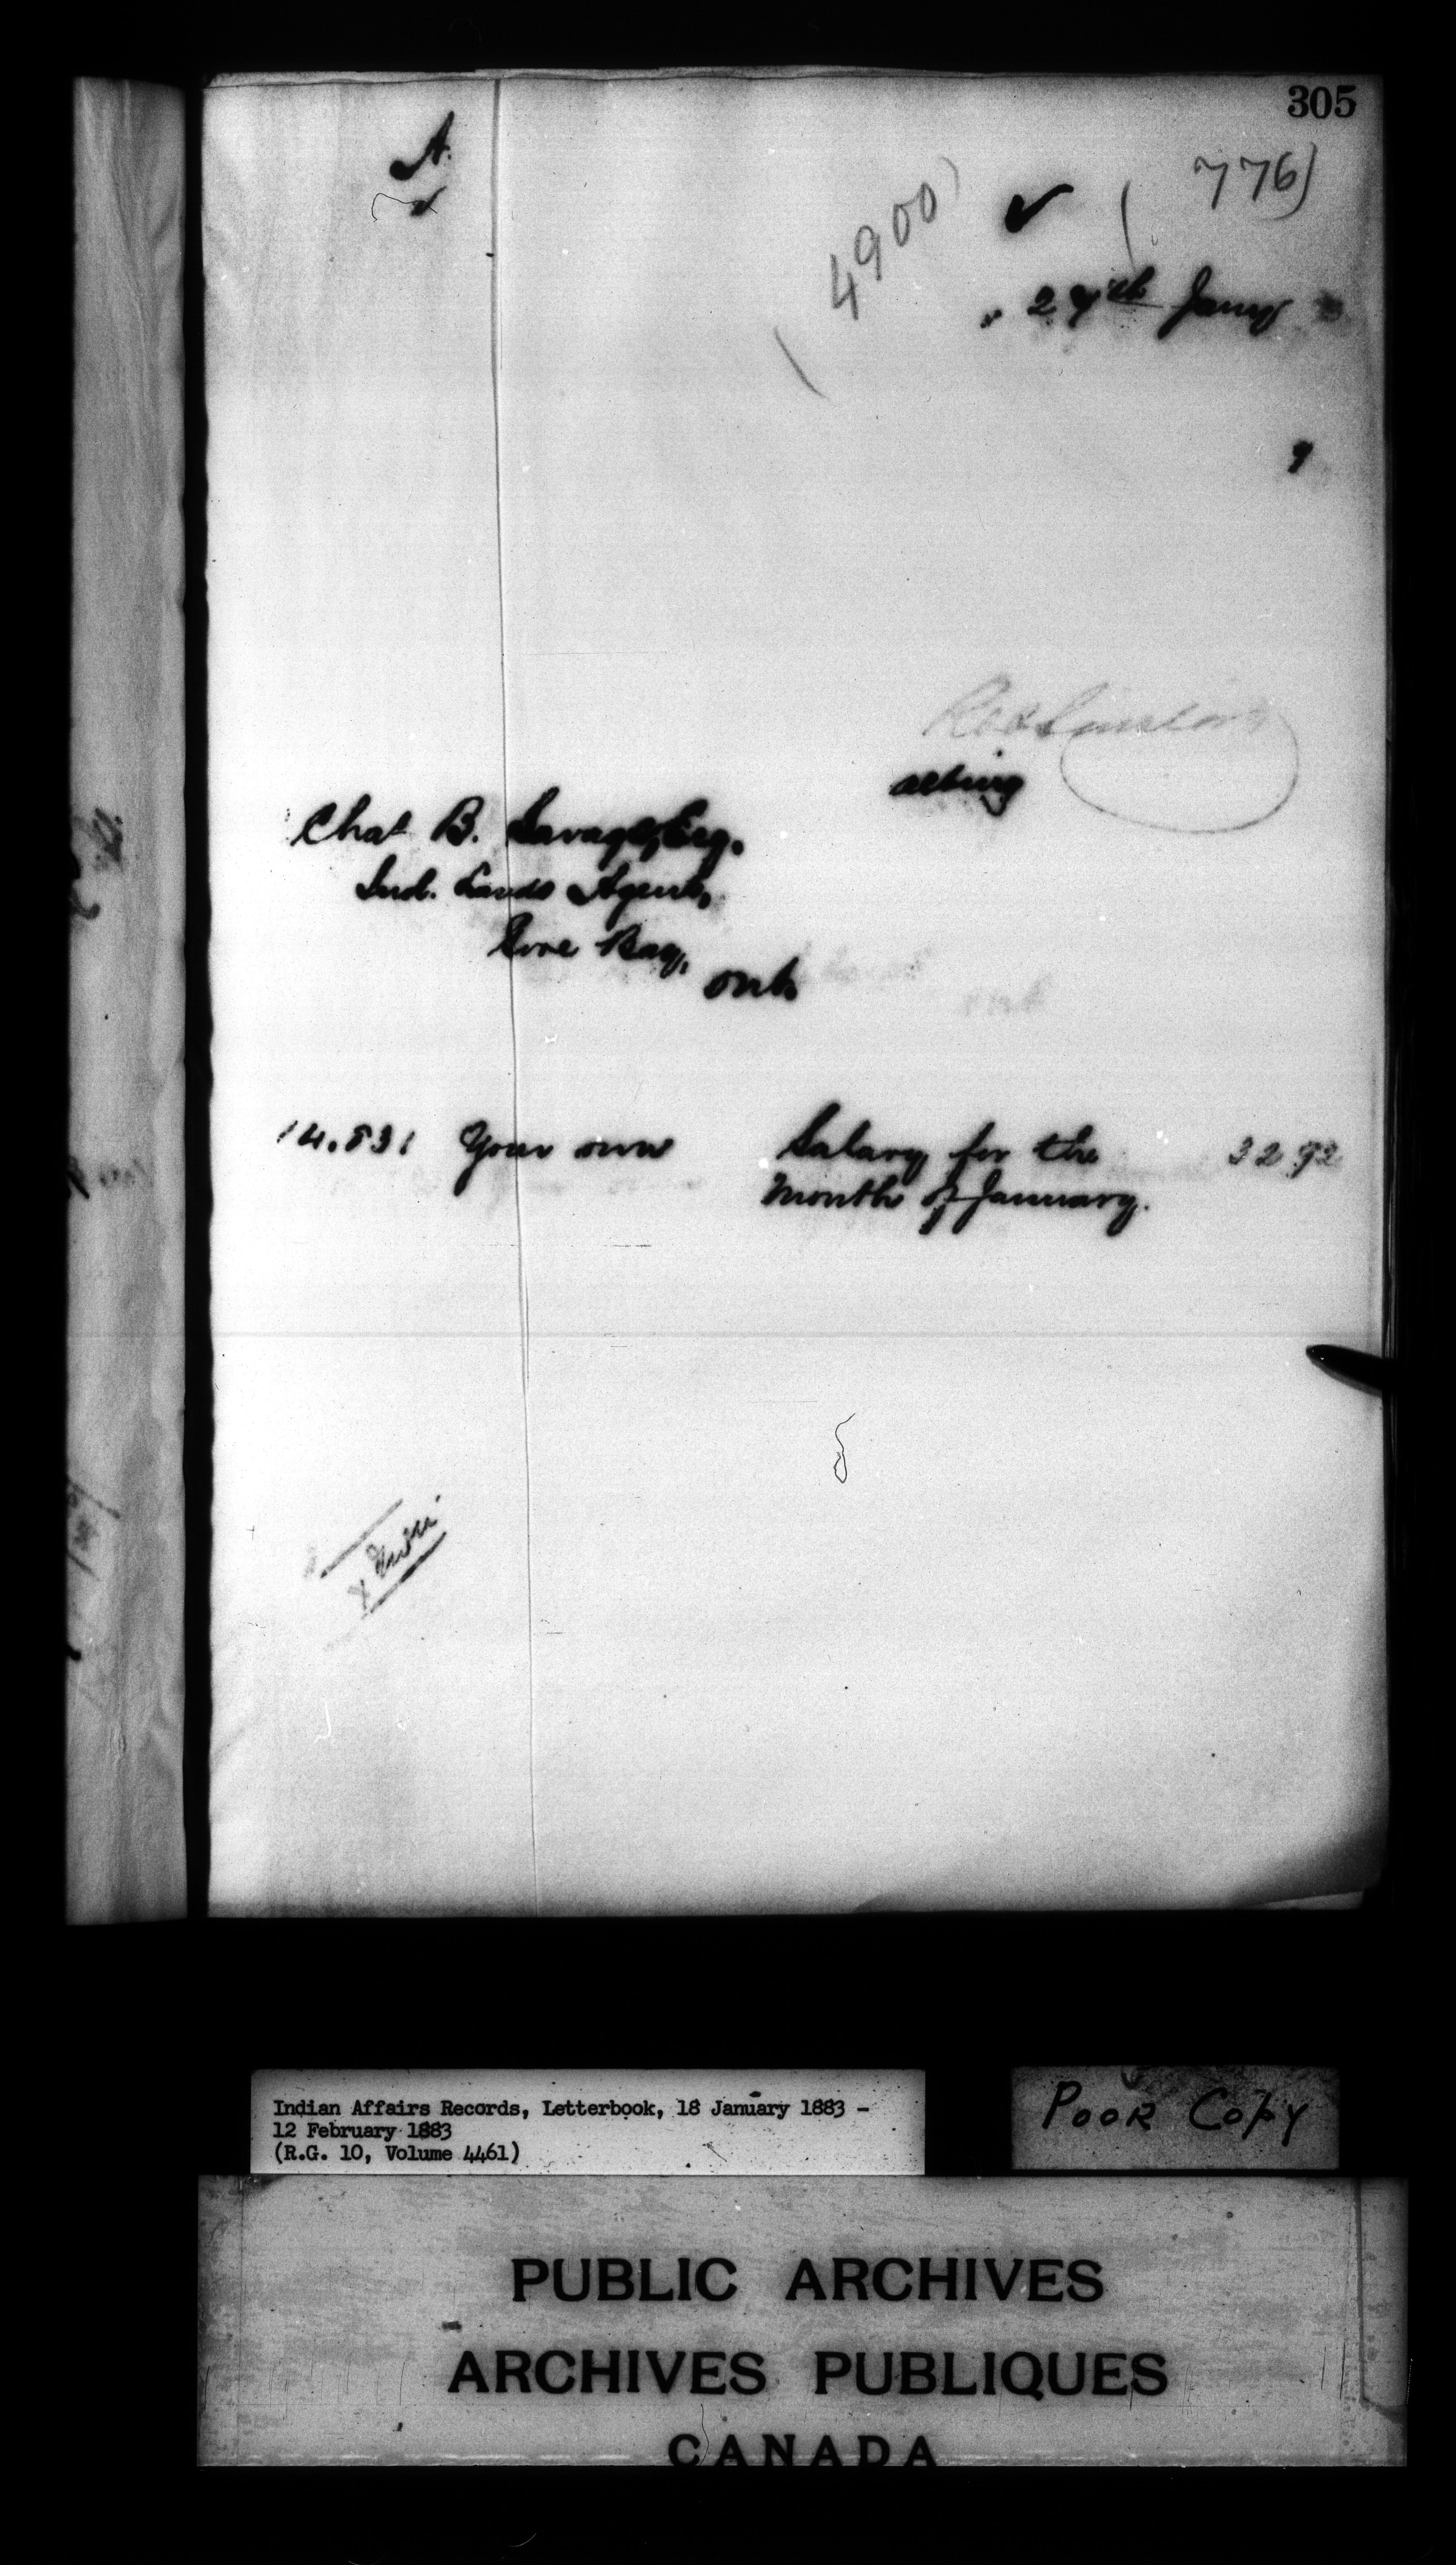 305
A.
(4900)
(776)
27th Jany 3
9
acting
Chas B. Savage, Esq.
Ind. Lands Agent,
Gore Bay,
Ont.
14.831 Your own Salary for the 32 92
Month of January.
Indian Affairs Records, Letterbook, 18 January 1883 -
12 February 1883
(R.G. 10, Volume 4461)
POOR COPY
PUBLIC ARCHIVES
ARCHIVES PUBLIQUES
CANADA